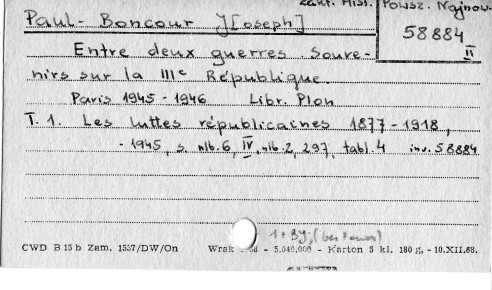 Zakł. Hist. Powsz. Najnow.
Paul-Boncour J[oseph]
58884
II
Entre deux guerres. Souve-
nirs sur la IIIe République.
Paris 1945-1946 Libr. Plon
T. 1. Les luttes républicaines 1877-1918,
- 1945, s. nlb. 6, IV, nlb. 2, 297, tabl. 4 inw. 58884
CWD B 15 b Zam. 1557/DW/On Wrak - 5.040.000 - Karton 5 kl. 180 g, - 10.XII.68.